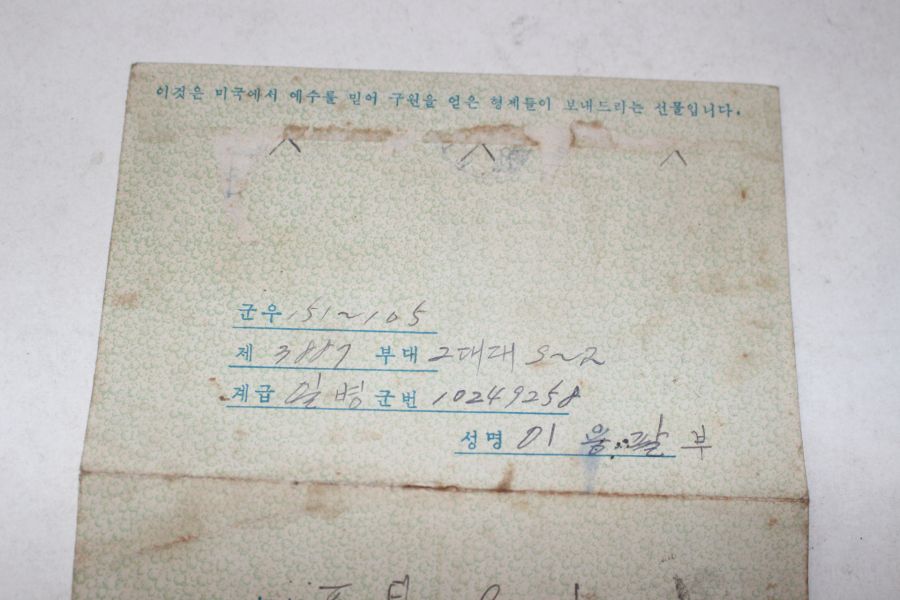 이것은 미국에서 예수를 믿어 구원을 얻은 형제들이 보내드리는 선물입니다.
군우 151~105
제 3887 부대 2대대 S~2
계급 일병 군번 10249258
성명 이